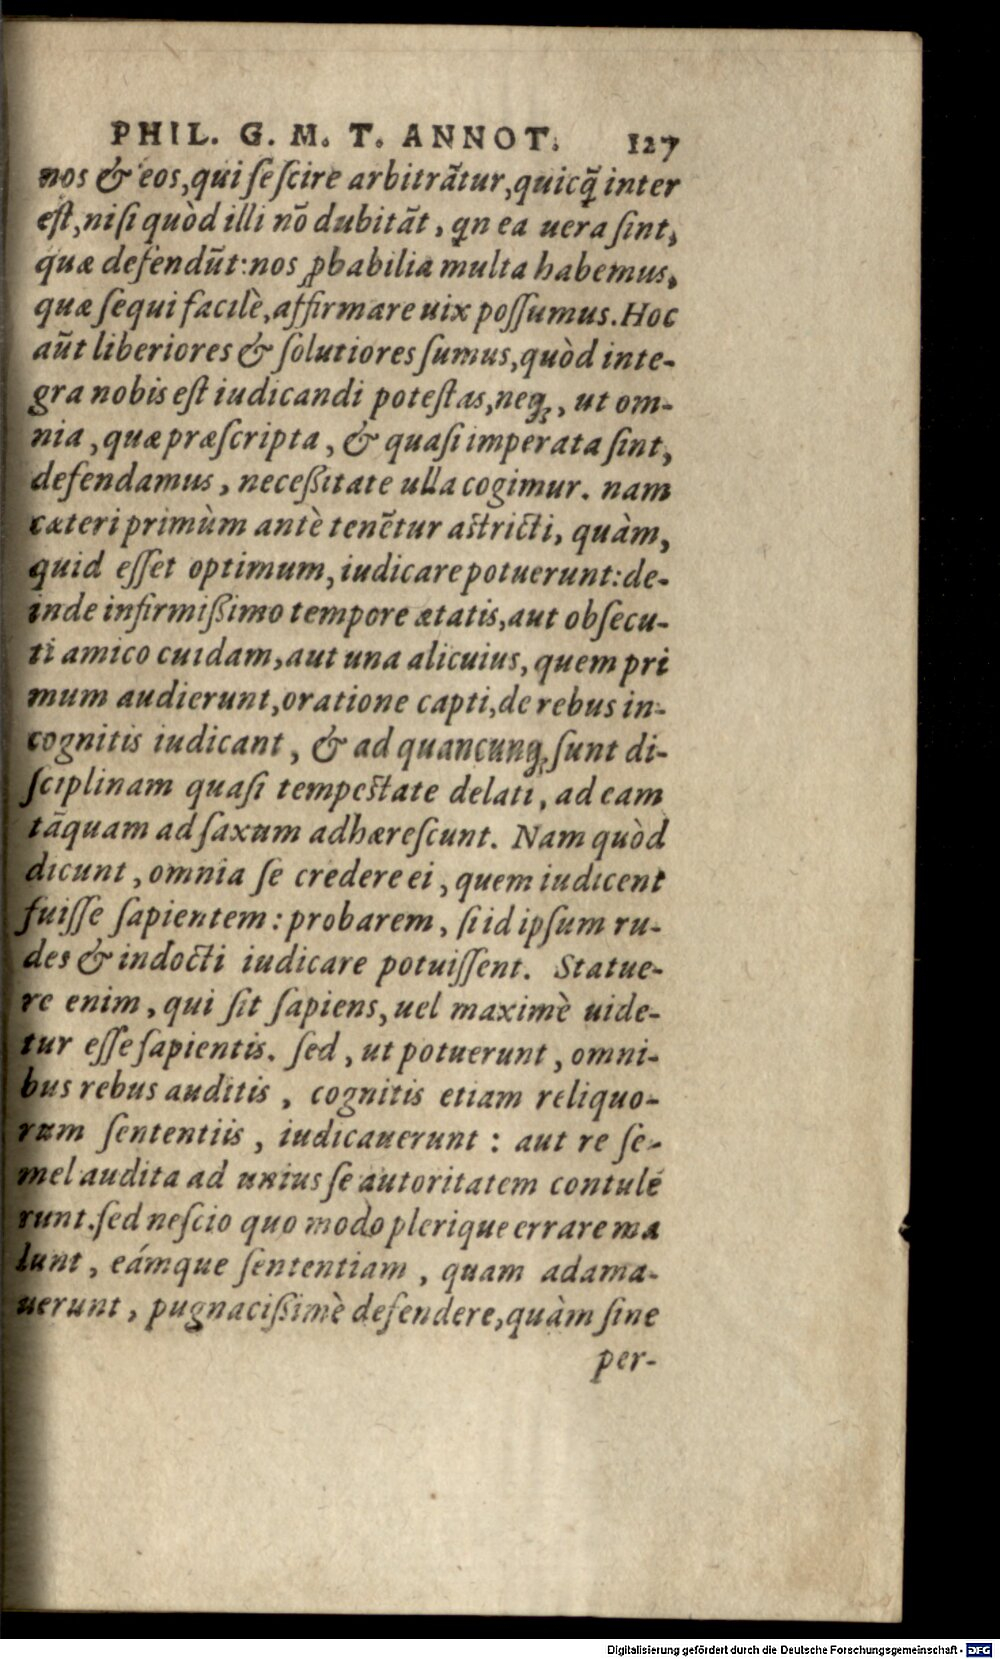 PHIL. G. M. T. ANNOT. 127
nos & eos, qui se scire arbitrãtur, quicq̃ inter
est, nisi quòd illi nõ dubitãt, qn ea uera sint,
quæ defendũt: nos ꝓbabilia multa habemus,
quæ sequi facilè, affirmare uix possumus. Hoc
aũt liberiores & solutiores sumus, quòd inte-
gra nobis est iudicandi potestas, neq;, ut om-
nia, quæ præscripta, & quasi imperata sint,
defendamus, neceßitate ulla cogimur. nam
cæteri primùm antè tenẽtur astricti, quàm,
quid esset optimum, iudicare potuerunt: de-
inde infirmißimo tempore ætatis, aut obsecu-
ti amico cuidam, aut una alicuius, quem pri
mum audierunt, oratione capti, de rebus in-
cognitis iudicant, & ad quancunq; sunt di-
sciplinam quasi tempestate delati, ad eam
tãquam ad saxum adhærescunt. Nam quòd
dicunt, omnia se credere ei, quem iudicent
fuisse sapientem: probarem, si id ipsum ru-
des & indocti iudicare potuissent. Statue-
re enim, qui sit sapiens, uel maximè uide-
tur esse sapientis. sed, ut potuerunt, omni-
bus rebus auditis, cognitis etiam reliquo-
rum sententiis, iudicauerunt: aut re se-
mel audita ad unius se autoritatem contulẽ
runt. sed nescio quo modo plerique errare ma
lunt, eámque sententiam, quam adama-
uerunt, pugnacißimè defendere, quàm sine
per-
Digitalisierung gefördert durch die Deutsche Forschungsgemeinschaft - DFG